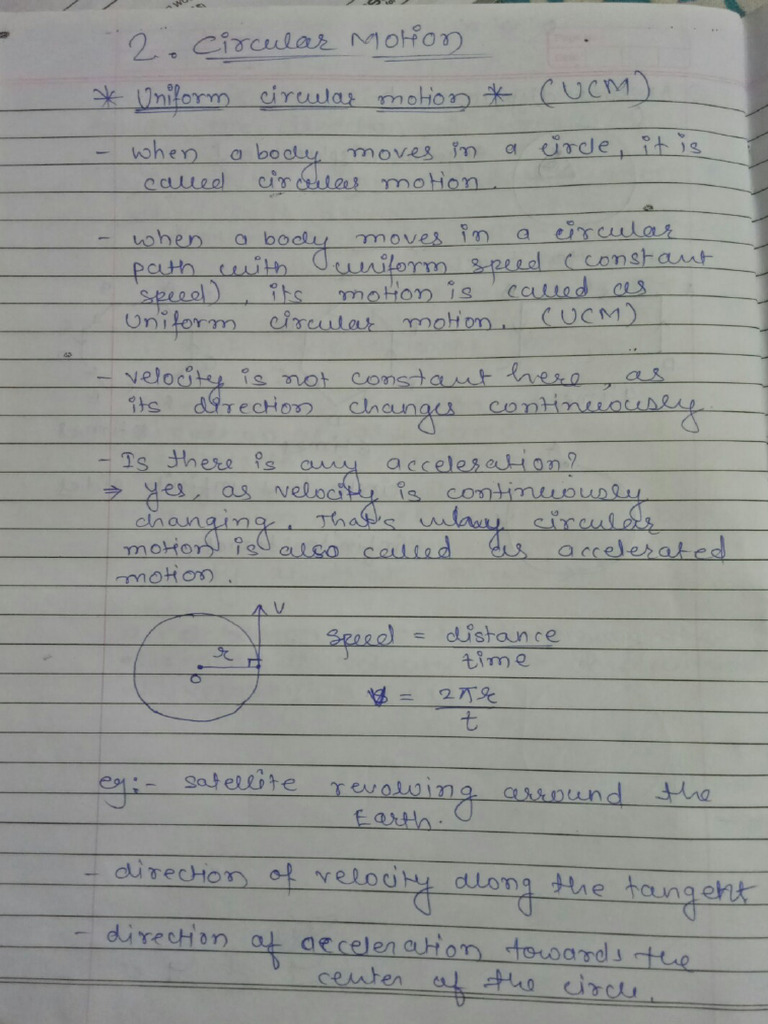 2. Circular Motion
* Uniform circular motion * (UCM)
- when a body moves in a circle, it is
called circular motion.
- when a body moves in a circular
path with uniform speed (constant
speed), its motion is called as
Uniform circular motion. (UCM)
- velocity is not constant here, as
its direction changes continuously
- Is there is any acceleration?
⇒ yes, as velocity is continuously
changing. That's why circular
motion is also called as accelerated
motion.
V
r
O
speed = distance
time
v = 2πr
t
eg:- satellite revolving arround the
Earth.
- direction of velocity along the tangent
- direction of acceleration towards the
center of the circle.